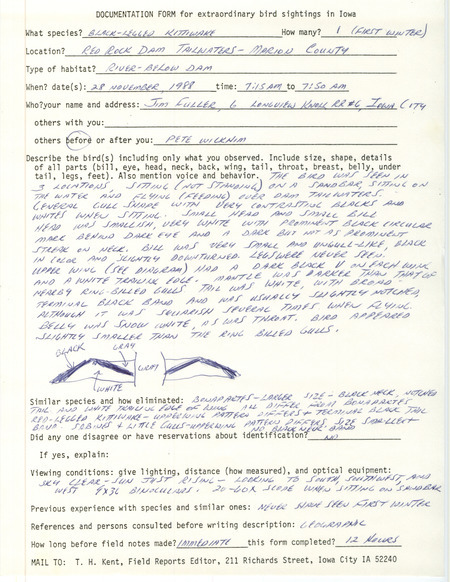 DOCUMENTATION FORM for extraordinary bird sightings in Iowa
What species? BLACK-LEGGED KITTIWAKE How many? 1 (FIRST WINTER)
Location? RED ROCK DAM TAILWATERS - MARION COUNTY
Type of habitat? RIVER - BELOW DAM
When? date(s): 28 NOVEMBER 1988 time: 7:15 AM to 7:50 AM
Who? your name and address: JIM FULLER, 6 LONGVIEW KNOLL RR#6, IOWA CITY
others with you:
others before or after you: PETE WICKHIM
Describe the bird(s) including only what you observed. Include size, shape, details
of all parts (bill, eye, head, neck, back, wing, tail, throat, breast, belly, under
tail, legs, feet). Also mention voice and behavior. THE BIRD WAS SEEN IN
3 LOCATIONS, SITTING (NOT STANDING) ON A SANDBAR, SITTING ON
THE WATER AND FLYING (FEEDING) OVER DAM TAILWATERS.
GENERAL GULL SHAPE WITH VERY CONTRASTING BLACKS AND
WHITES WHEN SITTING. SMALL HEAD AND SMALL BILL
HEAD WAS SMALLISH, VERY WHITE WITH PROMINENT BLACK CIRCULAR
MARK BEHIND DARK EYE AND A DARK BUT NOT AS PROMINENT
STREAK ON NECK. BILL WAS VERY SMALL AND UNGULL-LIKE, BLACK
IN COLOR AND SLIGHTLY DOWNTURNED. LEGS WERE NEVER SEEN.
UPPER WING (SEE DIAGRAM) HAD A DARK BLACK M ON EACH WING
AND A WHITE TRAILING EDGE. MANTLE WAS DARKER THAN THAT OF
NEARBY RING-BILLED GULLS. TAIL WAS WHITE, WITH BROAD
TERMINAL BLACK BAND AND WAS USUALLY SLIGHTLY NOTCHED,
ALTHOUGH IT WAS SQUARISH SEVERAL TIMES WHEN FLYING.
BELLY WAS SNOW WHITE, AS WAS THROAT. BIRD APPEARED
SLIGHTLY SMALLER THAN THE RING BILLED GULLS.
BLACK GRAY
GRAY
WHITE
Similar species and how eliminated: BONAPARTES - LARGER SIZE - BLACK NECK, NOTCHED
TAIL AND WHITE TRAILING EDGE OF WING ALL DIFFER FROM BONAPARTES
RED-LEGGED KITTIWAKE - UPPERWING PATTERN DIFFERS + TERMINAL BLACK TAIL
BAND. SABINES + LITTLE GULLS - UPPERWING PATTERN DIFFERS. SIZE SMALLER +
NO BLACK NECK BAND
Did any one disagree or have reservations about identification? NO
If yes, explain:
Viewing conditions: give lighting, distance (how measured), and optical equipment:
SKY CLEAR - SUN JUST RISING - LOOKING TO SOUTH, SOUTHWEST, AND
WEST 9X36 BINOCULARS. 20-60X SCOPE WHEN SITTING ON SANDBAR
Previous experience with species and similar ones: NEVER HAVE SEEN FIRST WINTER
References and persons consulted before writing description: GEOGRAPHIC
How long before field notes made? IMMEDIATE this form completed? 12 HOURS
MAIL TO: T. H. Kent, Field Reports Editor, 211 Richards Street, Iowa City IA 52240